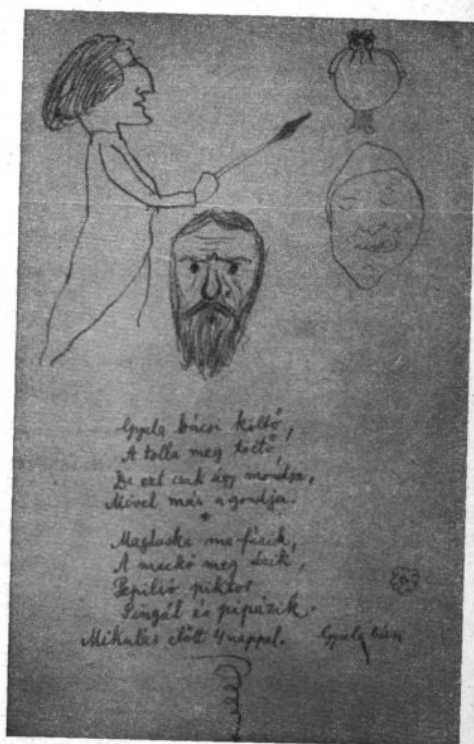 Gyula bácsi költő,
A tolla meg töltő,
De ezt csak úgy mondja,
Mivel más a gondja.
*
ma fázik,
A mackó meg ázik,
Pepilió piktor
Pingál és pipázik.
Mikulás előtt 4 nappal. Gyula bácsi